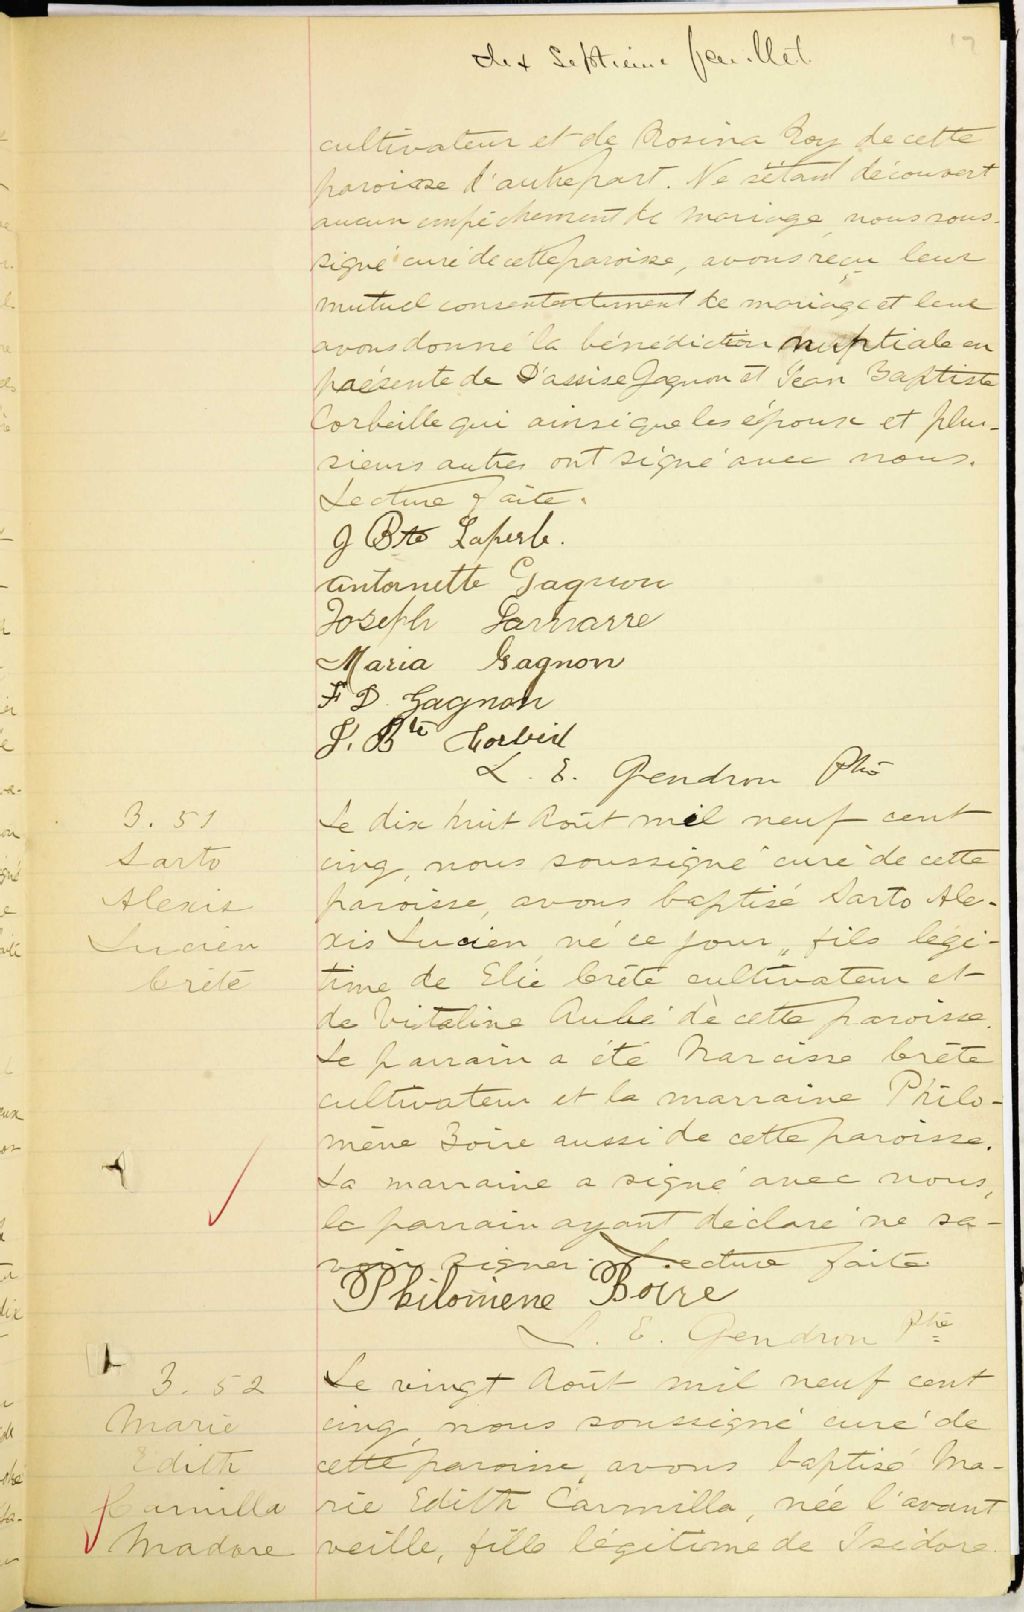 dix septième feuillet
17
cultivateur et de Rosina Roy de cette
paroisse d'autre part. Ne s'étant découvert
aucun empêchement de mariage, nous sous-
signé curé de cette paroisse, avons reçu leur
mutuel consentement de mariage et leur
avons donné la bénédiction nuptiale en
présente de D'assise Gagnon et Jean Baptiste
Corbeille qui ainsi que les époux et plu-
sieurs autres ont signé avec nous.
Lecture faite.
J Bte Laperle.
Antoinette Gagnon
Joseph Lamarre
Maria Gagnon
F D Gagnon
J. Bte Corbeil
L. E. Gendron Ptre
B. 51
Sarto
Alexis
Lucien
Crête
Le dix huit Août mil neuf cent
cinq, nous soussigné curé de cette
paroisse, avons baptisé Sarto Ale-
xis Lucien, né ce jour, fils légi-
time de Elie Crête cultivateur et
de Vitaline Aubé de cette paroisse.
Le parrain a été Narcisse Crête
cultivateur et la marraine Philo-
mène Boire aussi de cette paroisse.
La marraine a signé avec nous,
le parrain ayant déclaré ne sa-
voir signer. Lecture faite
Philomene Boire
L. E. Gendron Ptre
B. 52
Marie
Edith
Carmilla
Madore
Le vingt Août mil neuf cent
cinq, nous soussigné curé de
cette paroisse, avons baptisé Ma-
rie Edith Carmilla, née l'avant
veille, fille légitime de Isidore